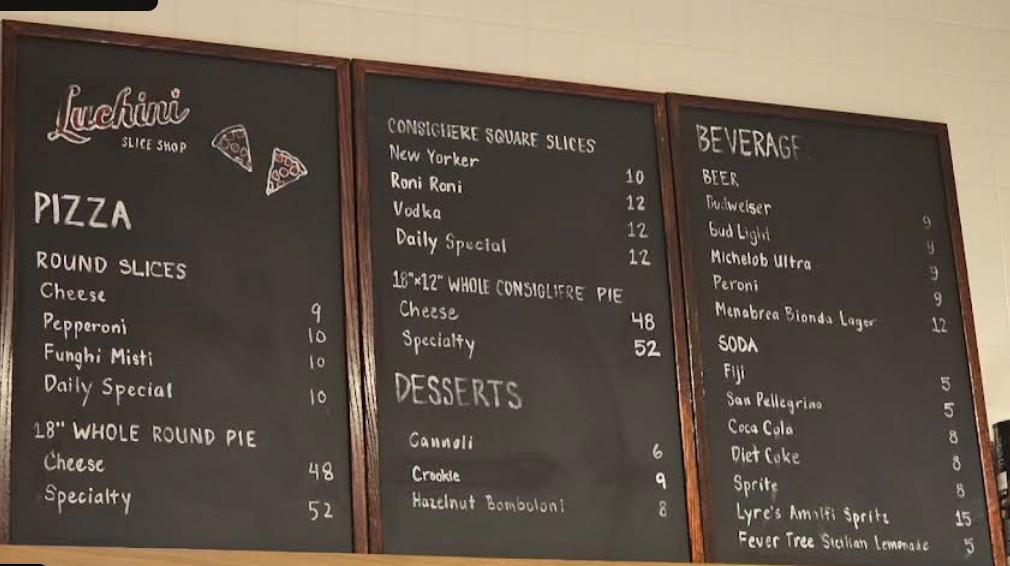 Luchini
SLICE SHOP
PIZZA
ROUND SLICES
Cheese 9
Pepperoni 10
Funghi Misti 10
Daily Special 10
18" WHOLE ROUND PIE
Cheese 48
Specialty 52
CONSIGLIERE SQUARE SLICES
New Yorker 10
Roni Roni 12
Vodka 12
Daily Special 12
18"x12" WHOLE CONSIGLIERE PIE
Cheese 48
Specialty 52
DESSERTS
Cannoli 6
Crookie 9
Hazelnut Bomboloni 8
BEVERAGE
BEER
Budweiser 9
Bud Light 9
Michelob Ultra 9
Peroni 9
Menabrea Bionda Lager 12
SODA
Fiji 5
San Pellegrino 5
Coca Cola 8
Diet Coke 8
Sprite 8
Lyre's Amalfi Spritz 15
Fever Tree Sicilian Lemonade 5